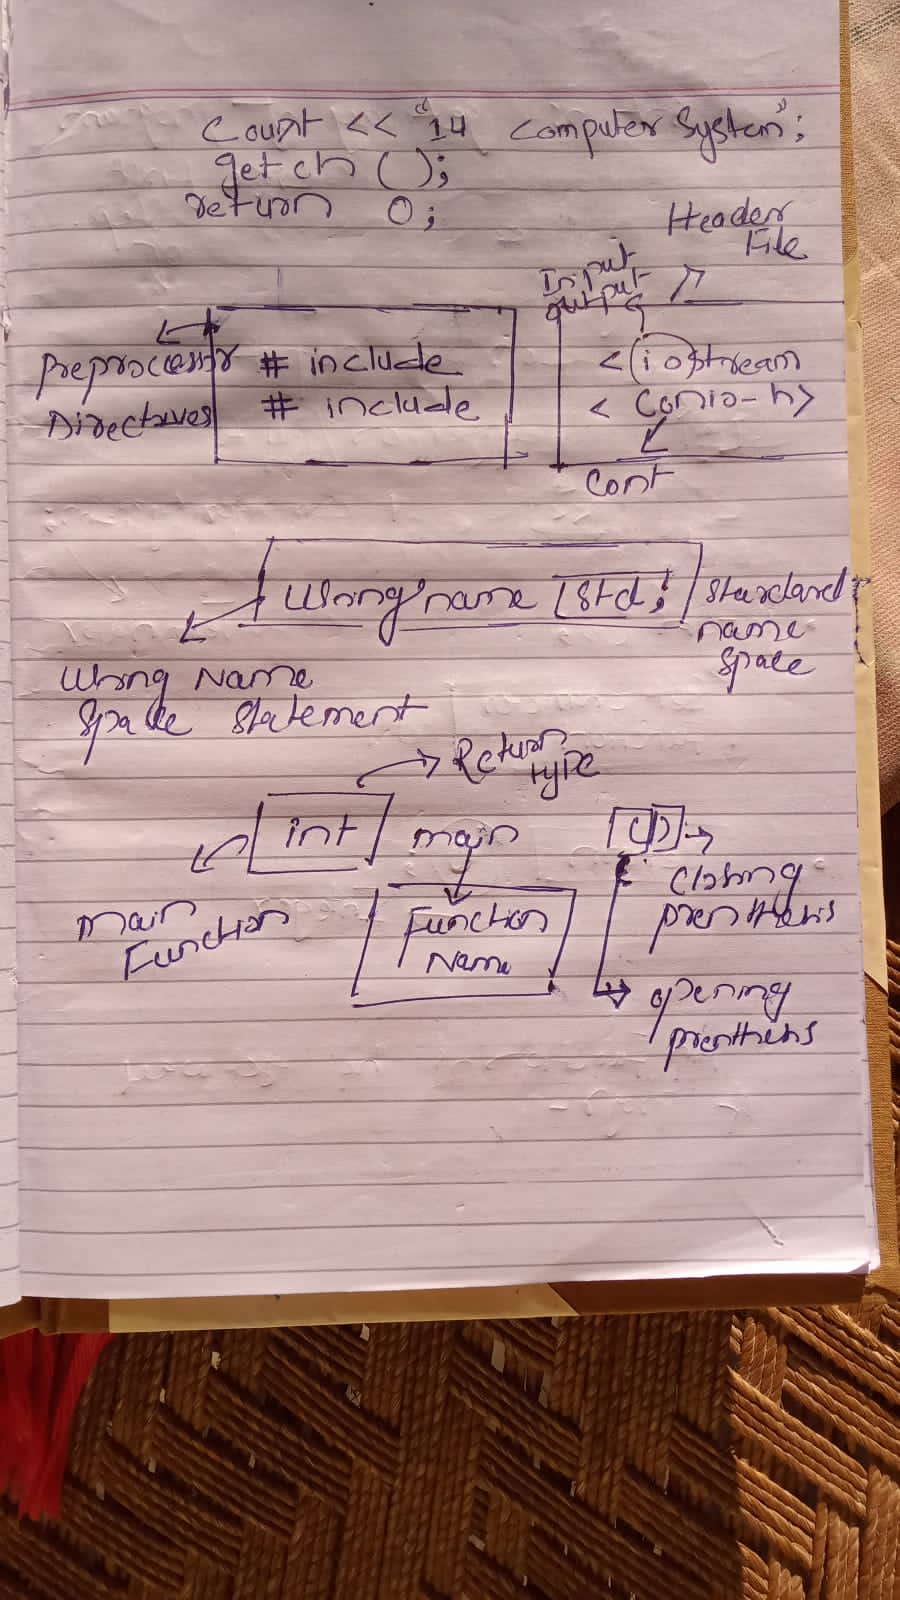 Count << "14 Computer System";
getch ();
return 0;
Header
File
Input
output
Preprocessor
Directives
# include
# include
< iostream
< Conio-h>
Cont
Using name std;
Standard
name
space
Using Name
Space Statement
Return
type
int main ()
main
Function
Function
Name
Closing
prenthesis
opening
prenthesis